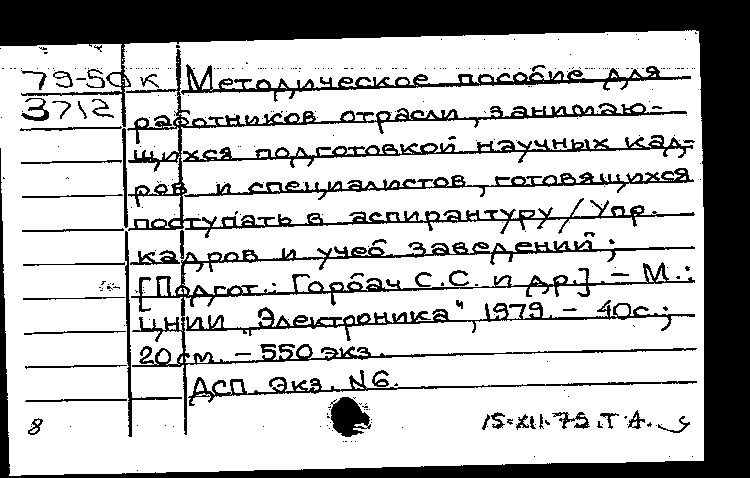 79-50 к Методическое пособие для
3712 работников отрасли, занимаю-
щихся подготовкой научных кад-
ров и специалистов, готовящихся
поступать в аспирантуру / Упр.
кадров и учеб. заведений;
[Подгот.: Горбач С.С. и др.]. – М.:
ЦНИИ „Электроника“, 1979. – 40с.;
20 см. – 550 экз.
ДСП. Экз. N6.
8 15-XII-79. Т.А.